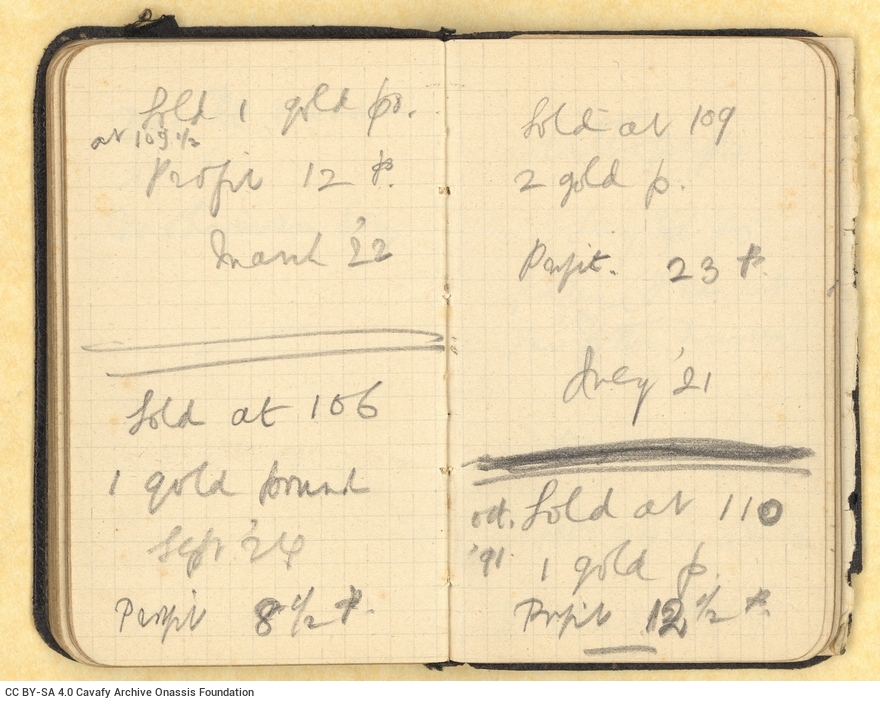 Sold 1 gold p.
at 109 1/2
Profit 12 p.
March '22
Sold at 106
1 gold pound
Sept '24
Profit 8 1/2 p.
Sold at 109
2 gold p.
Profit. 23 p
July '21
Oct. Sold at 110
'91 1 gold p.
Profit 12 1/2 p.
CC BY-SA 4.0 Cavafy Archive Onassis Foundation